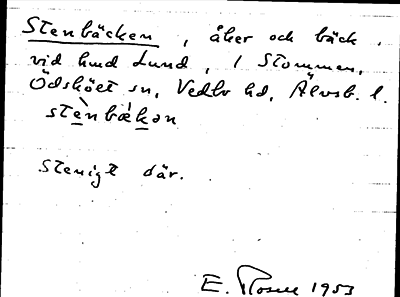 Stenbäcken, åker och bäck,
vid hmd Lund, i Stommen,
Ödsköet sn, Vedbo hd, Älvsb. l.
stènbækən
Stenigt där.
E. Rosell 1953